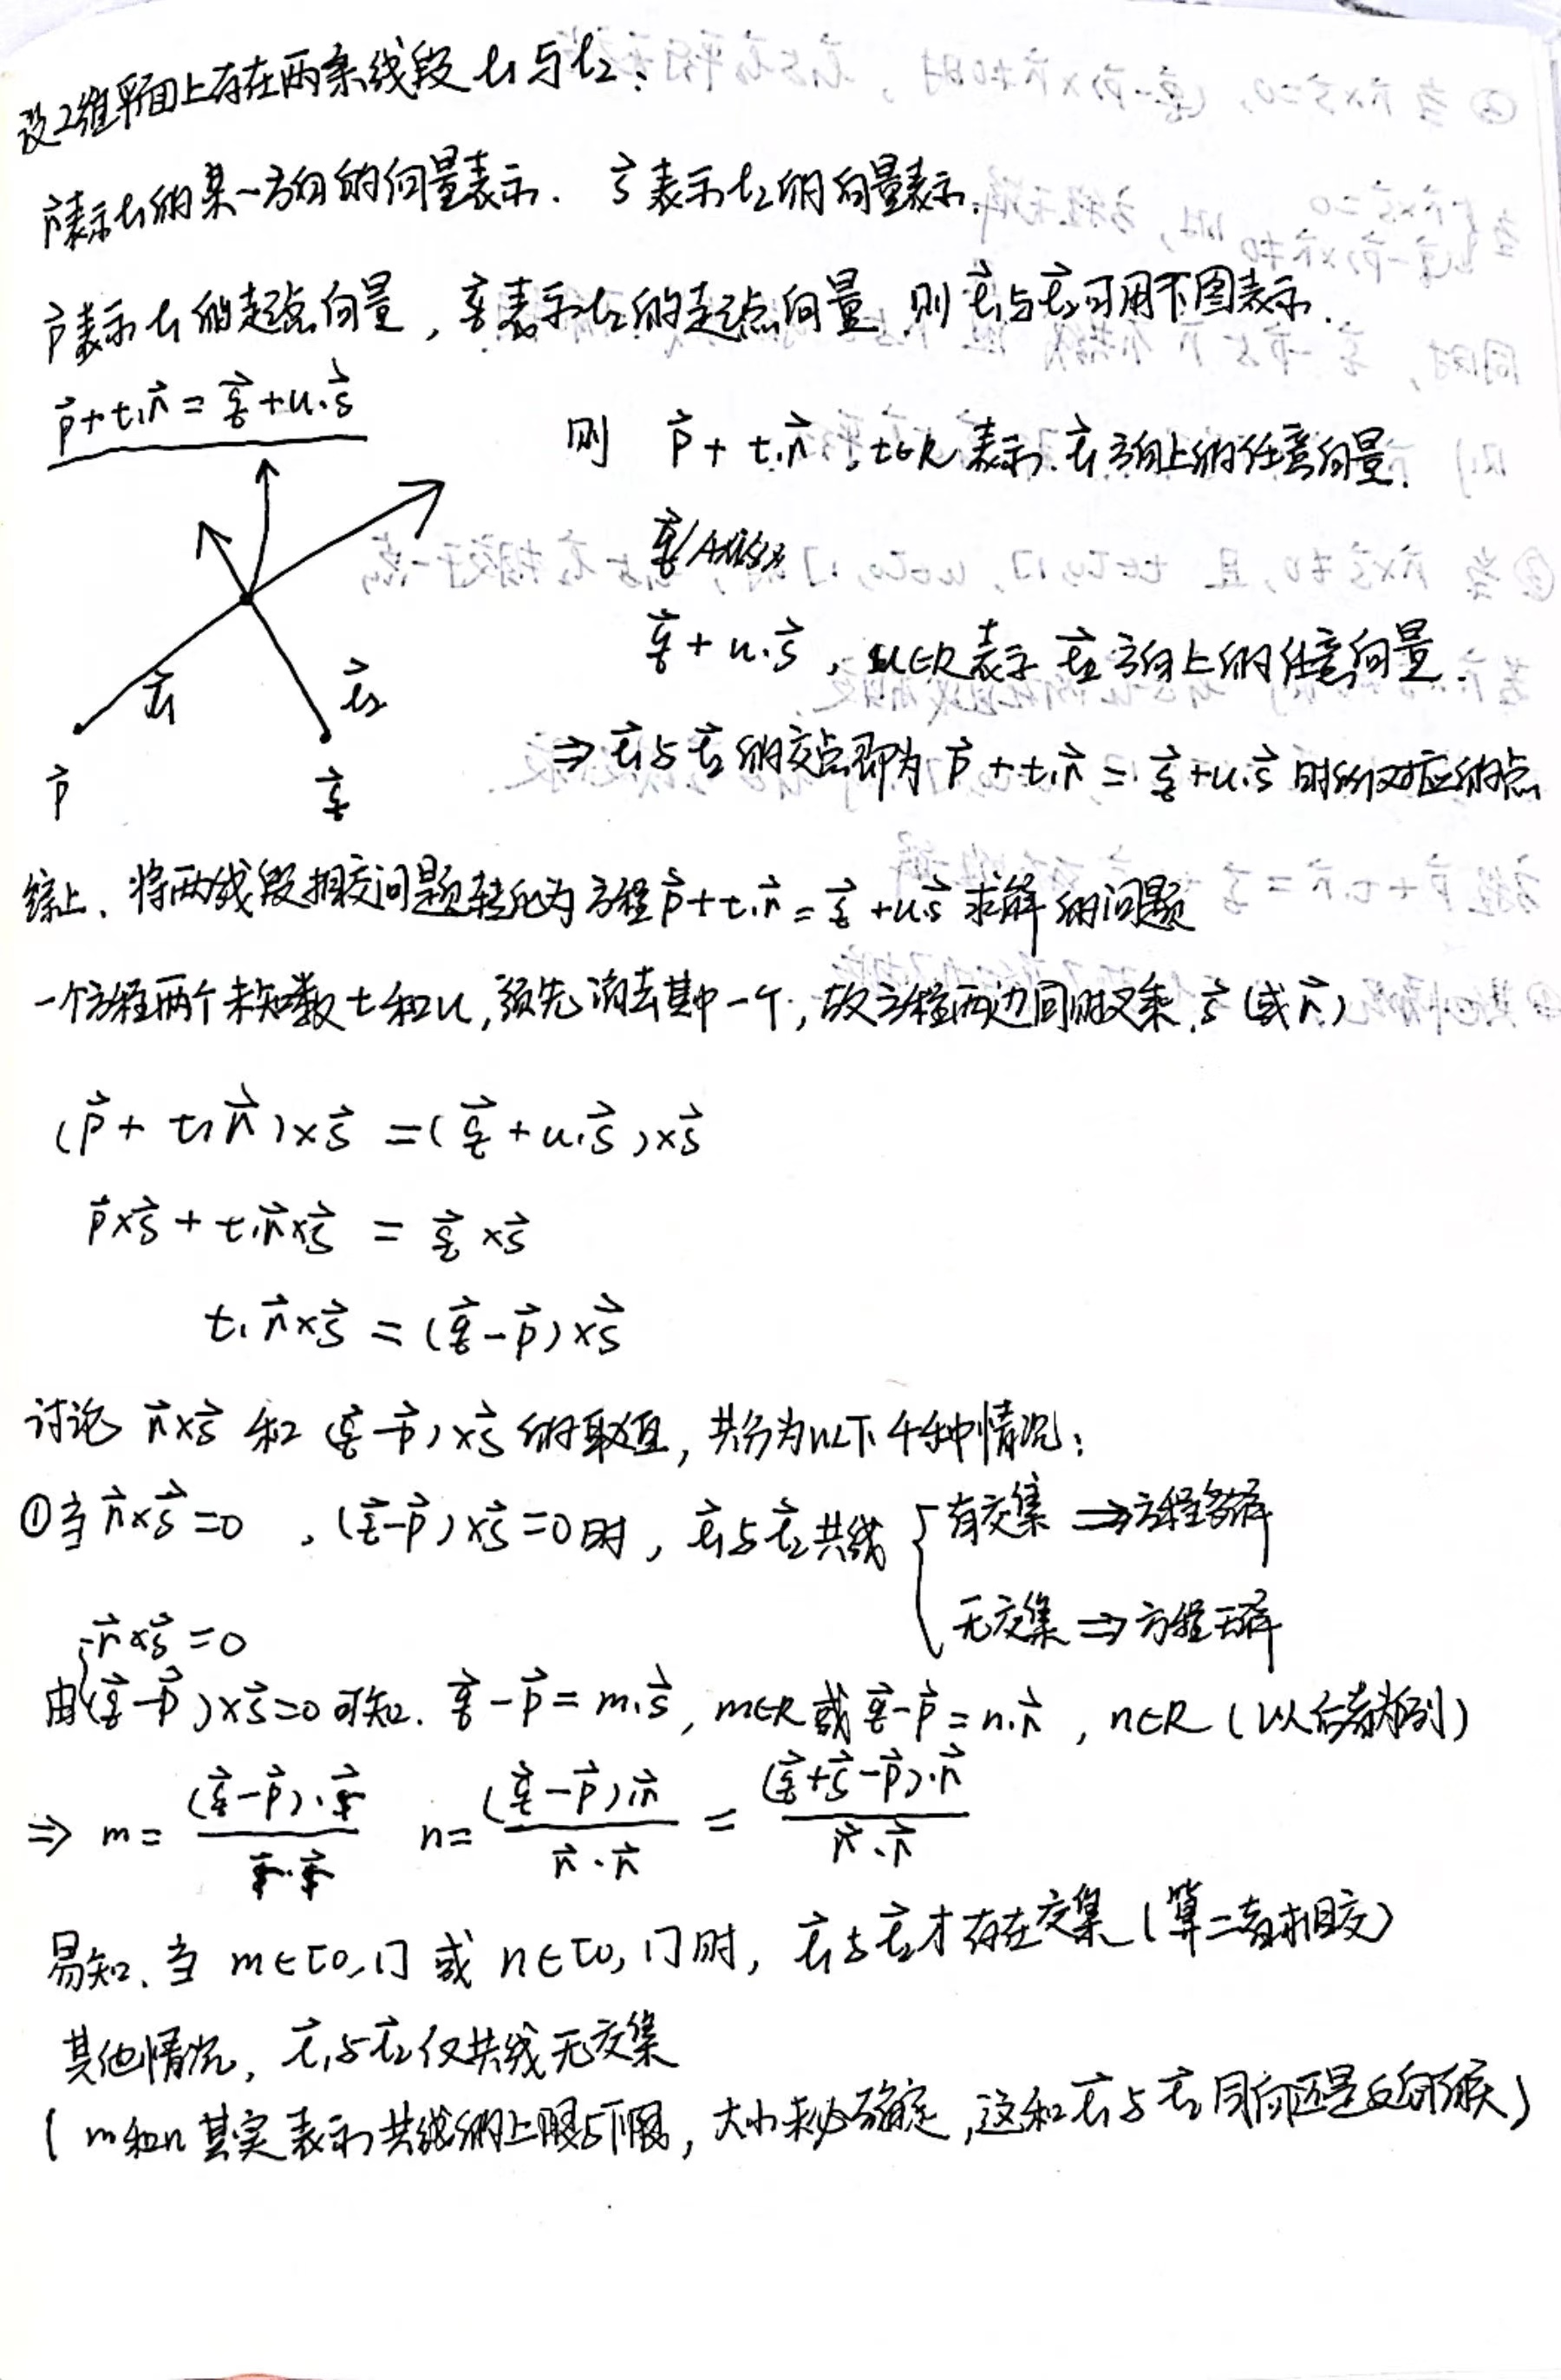 设2维平面上存在两条线段 l₁与l₂：
r⃗表示l₁的某一方向的向量表示. s⃗表示l₂的向量表示.
p⃗表示l₁的起点向量, q⃗表示l₂的起点向量, 则 l⃗₁与l⃗₂可用下图表示.
p⃗+t·r⃗ = q⃗+u·s⃗
则 p⃗ + t·r⃗, t∈R 表示 l⃗₁方向上的任意向量.
q⃗ + u·s⃗, u∈R表示 l⃗₂方向上的任意向量.
l⃗₁
l⃗₂
p⃗
q⃗
⇒ l⃗₁与l⃗₂的交点即为 p⃗ + t·r⃗ = q⃗+u·s⃗ 时所对应的点
综上、将两线段相交问题转化为方程p⃗+t·r⃗ = q⃗+u·s⃗ 求解的问题
一个方程两个未知数 t 和u, 须先消去其中一个, 故方程两边同时叉乘 s⃗ (或 r⃗)
(p⃗ + t·r⃗)×s⃗ = (q⃗ + u·s⃗)×s⃗
p⃗×s⃗ + t·r⃗×s⃗ = q⃗×s⃗
t·r⃗×s⃗ = (q⃗-p⃗)×s⃗
讨论 r⃗×s⃗ 和 (q⃗-p⃗)×s⃗ 的取值, 共分为以下4种情况：
①当 r⃗×s⃗ =0 , (q⃗-p⃗)×s⃗=0时, l⃗₁与l⃗₂共线 { 有交集 ⇒方程多解
无交集 ⇒ 方程无解
r⃗×s⃗ =0
由{(q⃗-p⃗)×s⃗=0 可知. q⃗-p⃗ = m·s⃗, m∈R 或 q⃗-p⃗ = n·r⃗, n∈R (以后者为例)
⇒ m= (q⃗-p⃗)·s⃗ / s⃗·s⃗ n= (q⃗-p⃗)·r⃗ / r⃗·r⃗ = (q⃗+s⃗-p⃗)·r⃗ / r⃗·r⃗
易知、当 m∈[0,1] 或 n∈[0,1]时, l⃗₁与l⃗₂才存在交集 (算二者相交)
其他情况, l⃗₁与l⃗₂仅共线无交集
( m和n 其实表示共线的上限与下限, 大小未必确定, 这和 l⃗₁与l⃗₂同向还是反向有关)